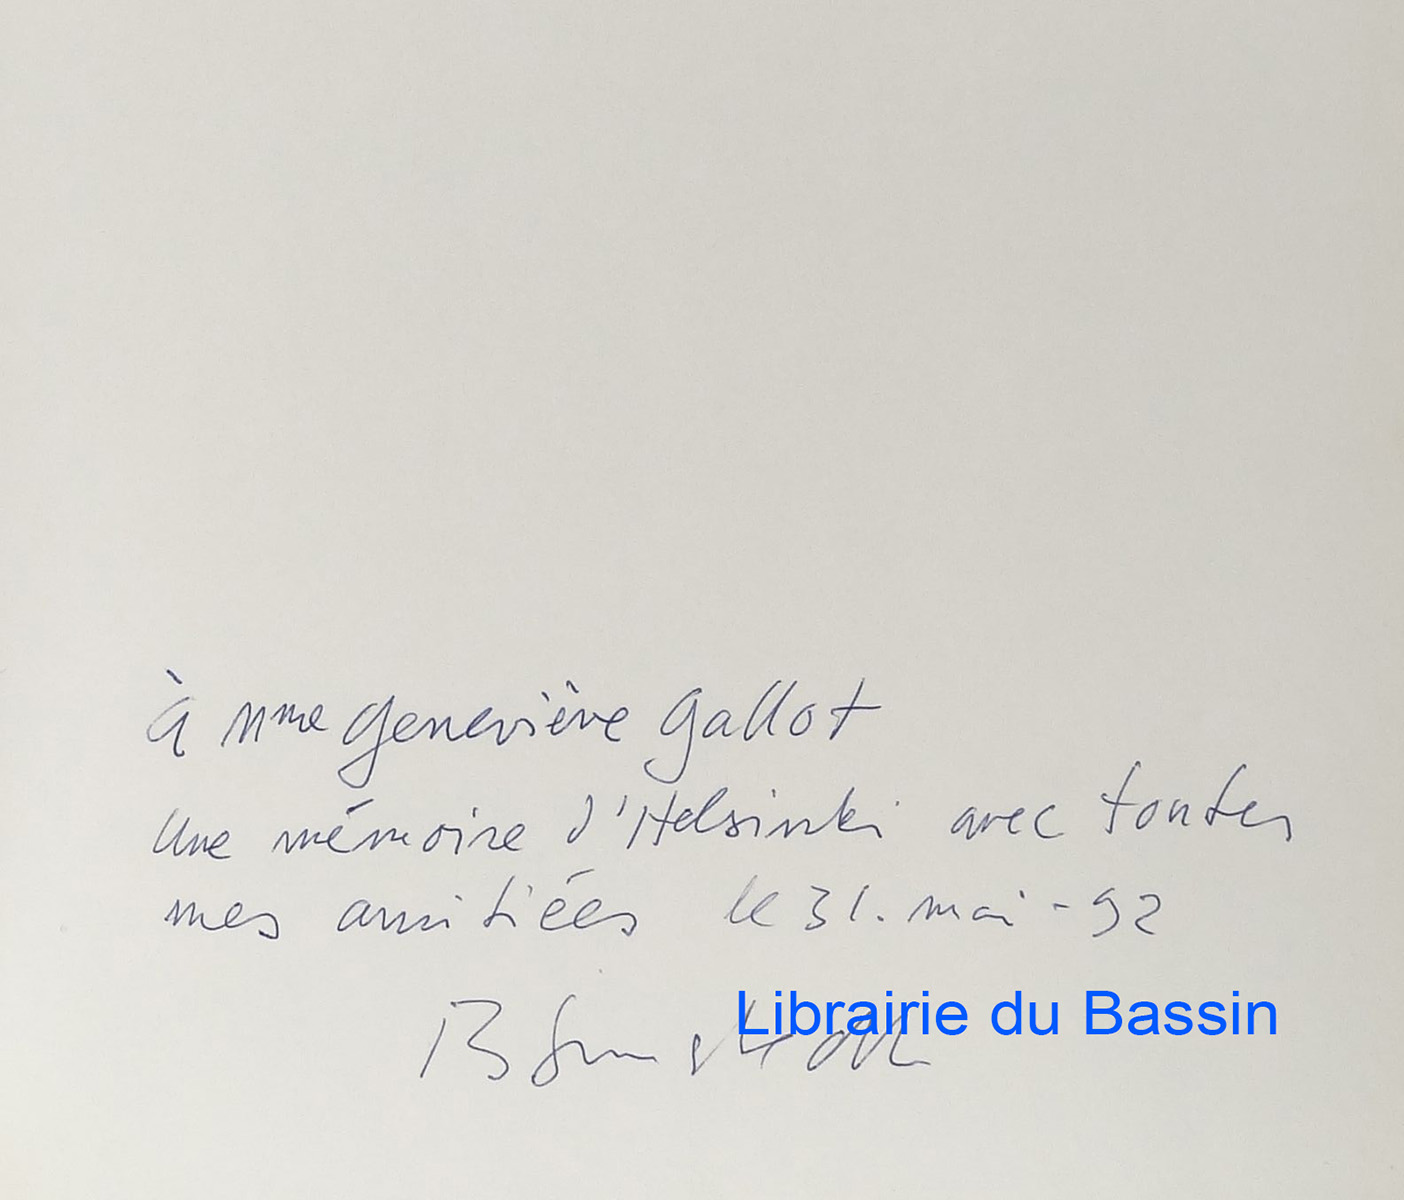 à Mme Geneviève Gallot
Une mémoire d'Helsinki avec toutes
mes amitiées le 31. mai - 92
Librairie du Bassin